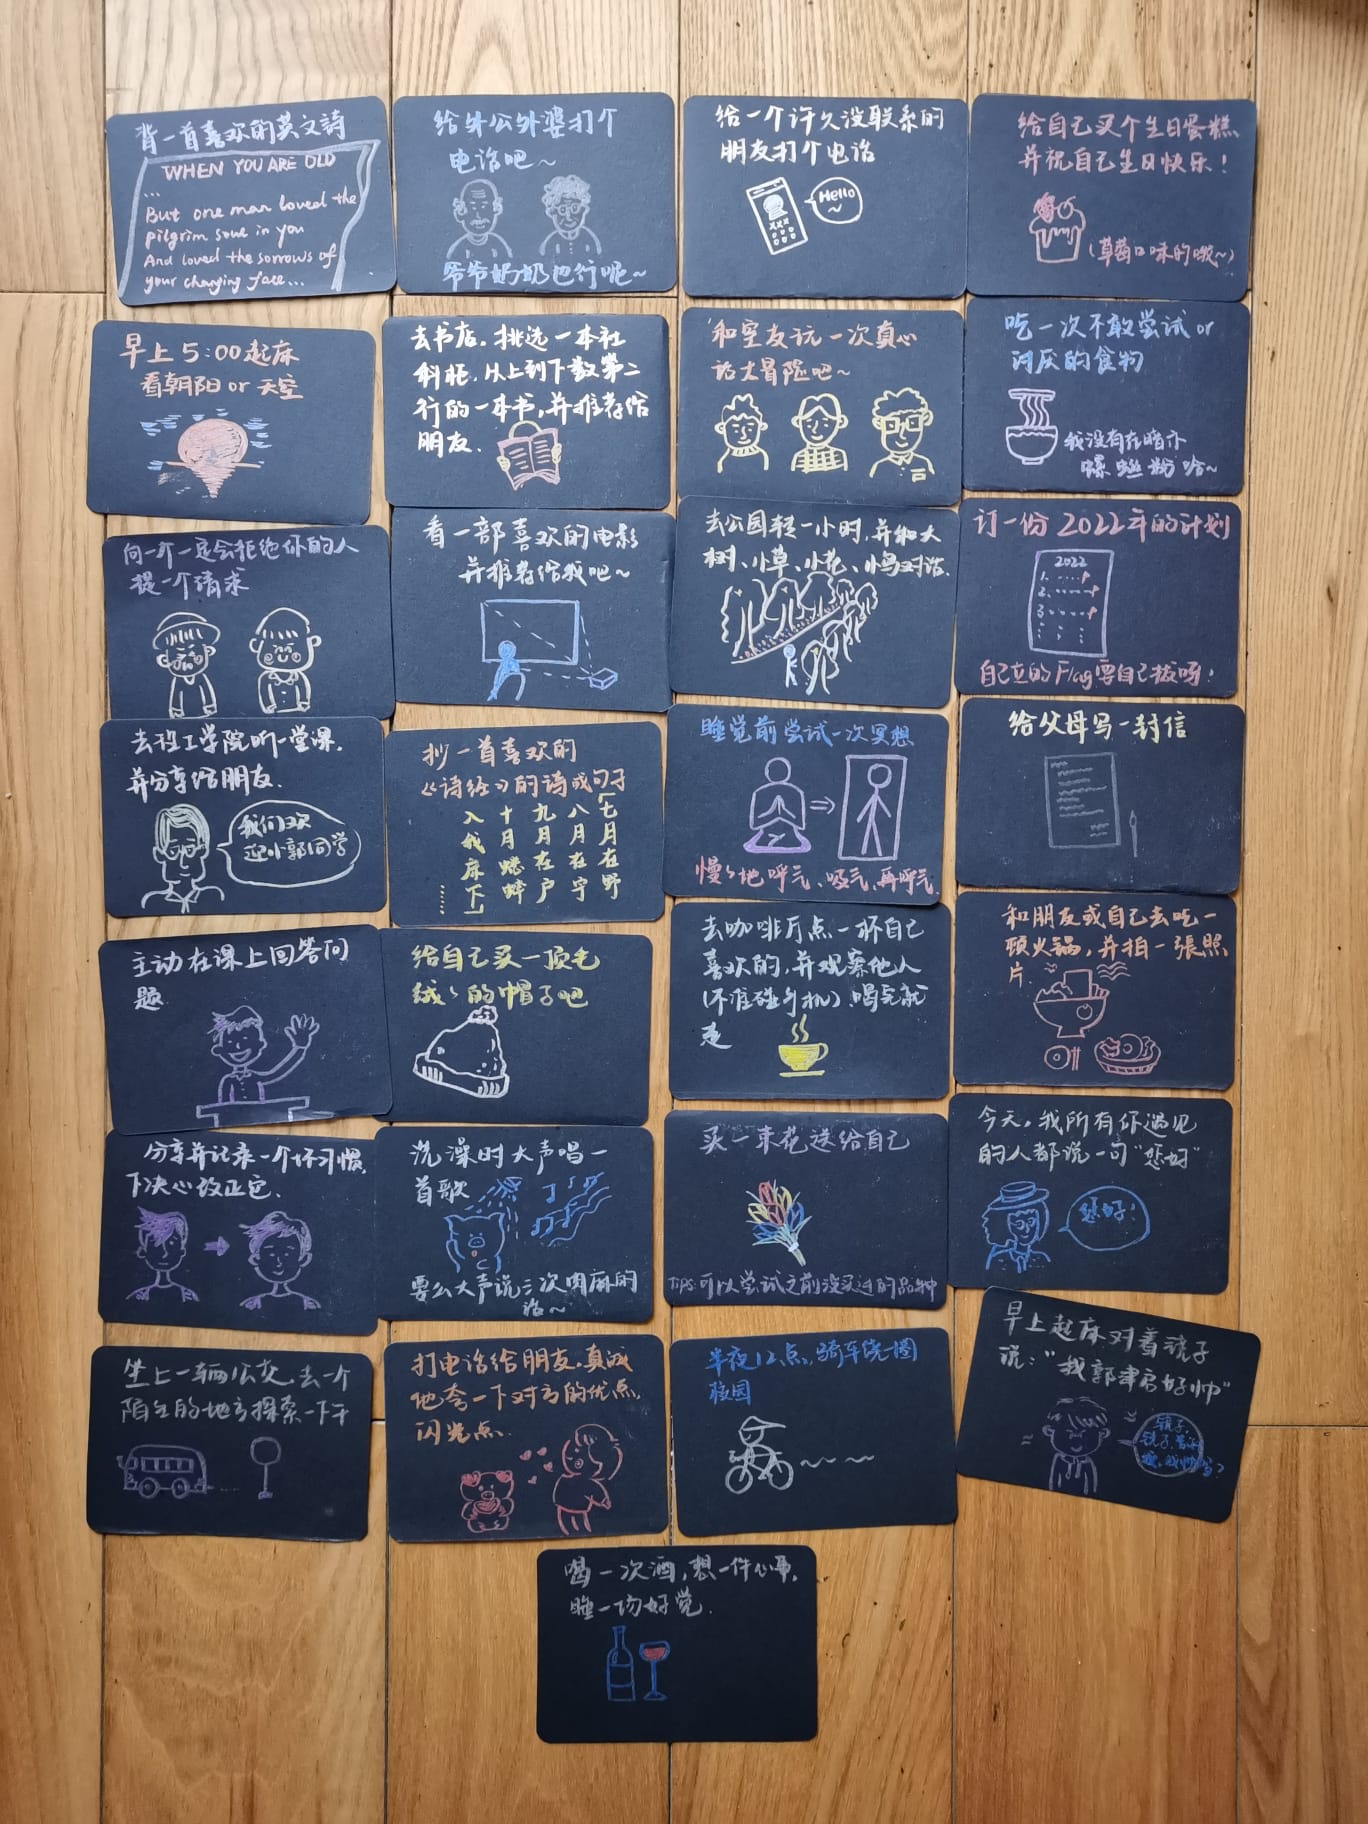 背一首喜欢的英文詩
WHEN YOU ARE OLD
...
But one man loved the
pilgrim soul in you
And loved the sorrows of
your changing face...
给外公外婆打个
电话吧~
爷爷奶奶也行呢~
给一个许久没联系的
朋友打个电话
Hello
~
给自己买个生日蛋糕
并祝自己生日快乐!
(草莓口味的哦~)
早上5:00起床
看朝阳or天空
去书店,挑选一本社
科版,从上到下数第二
行的一本书,并推荐给
朋友.
和室友玩一次真心
话大冒险吧~
吃一次不敢尝试or
讨厌的食物
我没有在暗示
螺蛳粉哈~
向一个一定会拒绝你的人
提一个请求
看一部喜欢的电影
并推荐给我吧~
去公园转一小时,并和大
树、小草、小花、小鸟对话.
订一份2022年的计划
2022
1.
2.
3.
自己立的Flag要自己拔呀!
去社工学院听一堂课.
并分享给朋友.
我们欢
迎小郭同学
抄一首喜欢的
《诗经》的诗或句子
「七月在野
八月在宇
九月在户
十月蟋蟀
入我床下」
......
睡觉前尝试一次冥想
慢慢地呼气、吸气,再呼气.
给父母写一封信
主动在课上回答问
题
给自己买一顶毛
绒绒的帽子吧
去咖啡厅点一杯自己
喜欢的,并观察他人
(不准碰手机),喝完就
走
和朋友或自己去吃一
顿火锅,并拍一張照
片
分享并记录一个坏习惯.
下决心改正它.
洗澡时大声唱一
首歌
要么大声说三次肉麻的
话~
买一束花送给自己
TIPS:可以尝试之前没买过的品种
今天,我所有你遇见
的人都说一句"您好"
您好!
坐上一辆公交,去一个
陌生的地方探索一下午
打电话给朋友,真诚
地夸一下对方的优点,
闪光点.
半夜12点,骑车绕圈
校园
早上起床对着镜子
说:"我郭聿君好帅"
镜子,
喝一次酒,想一件心事,
睡一场好觉.